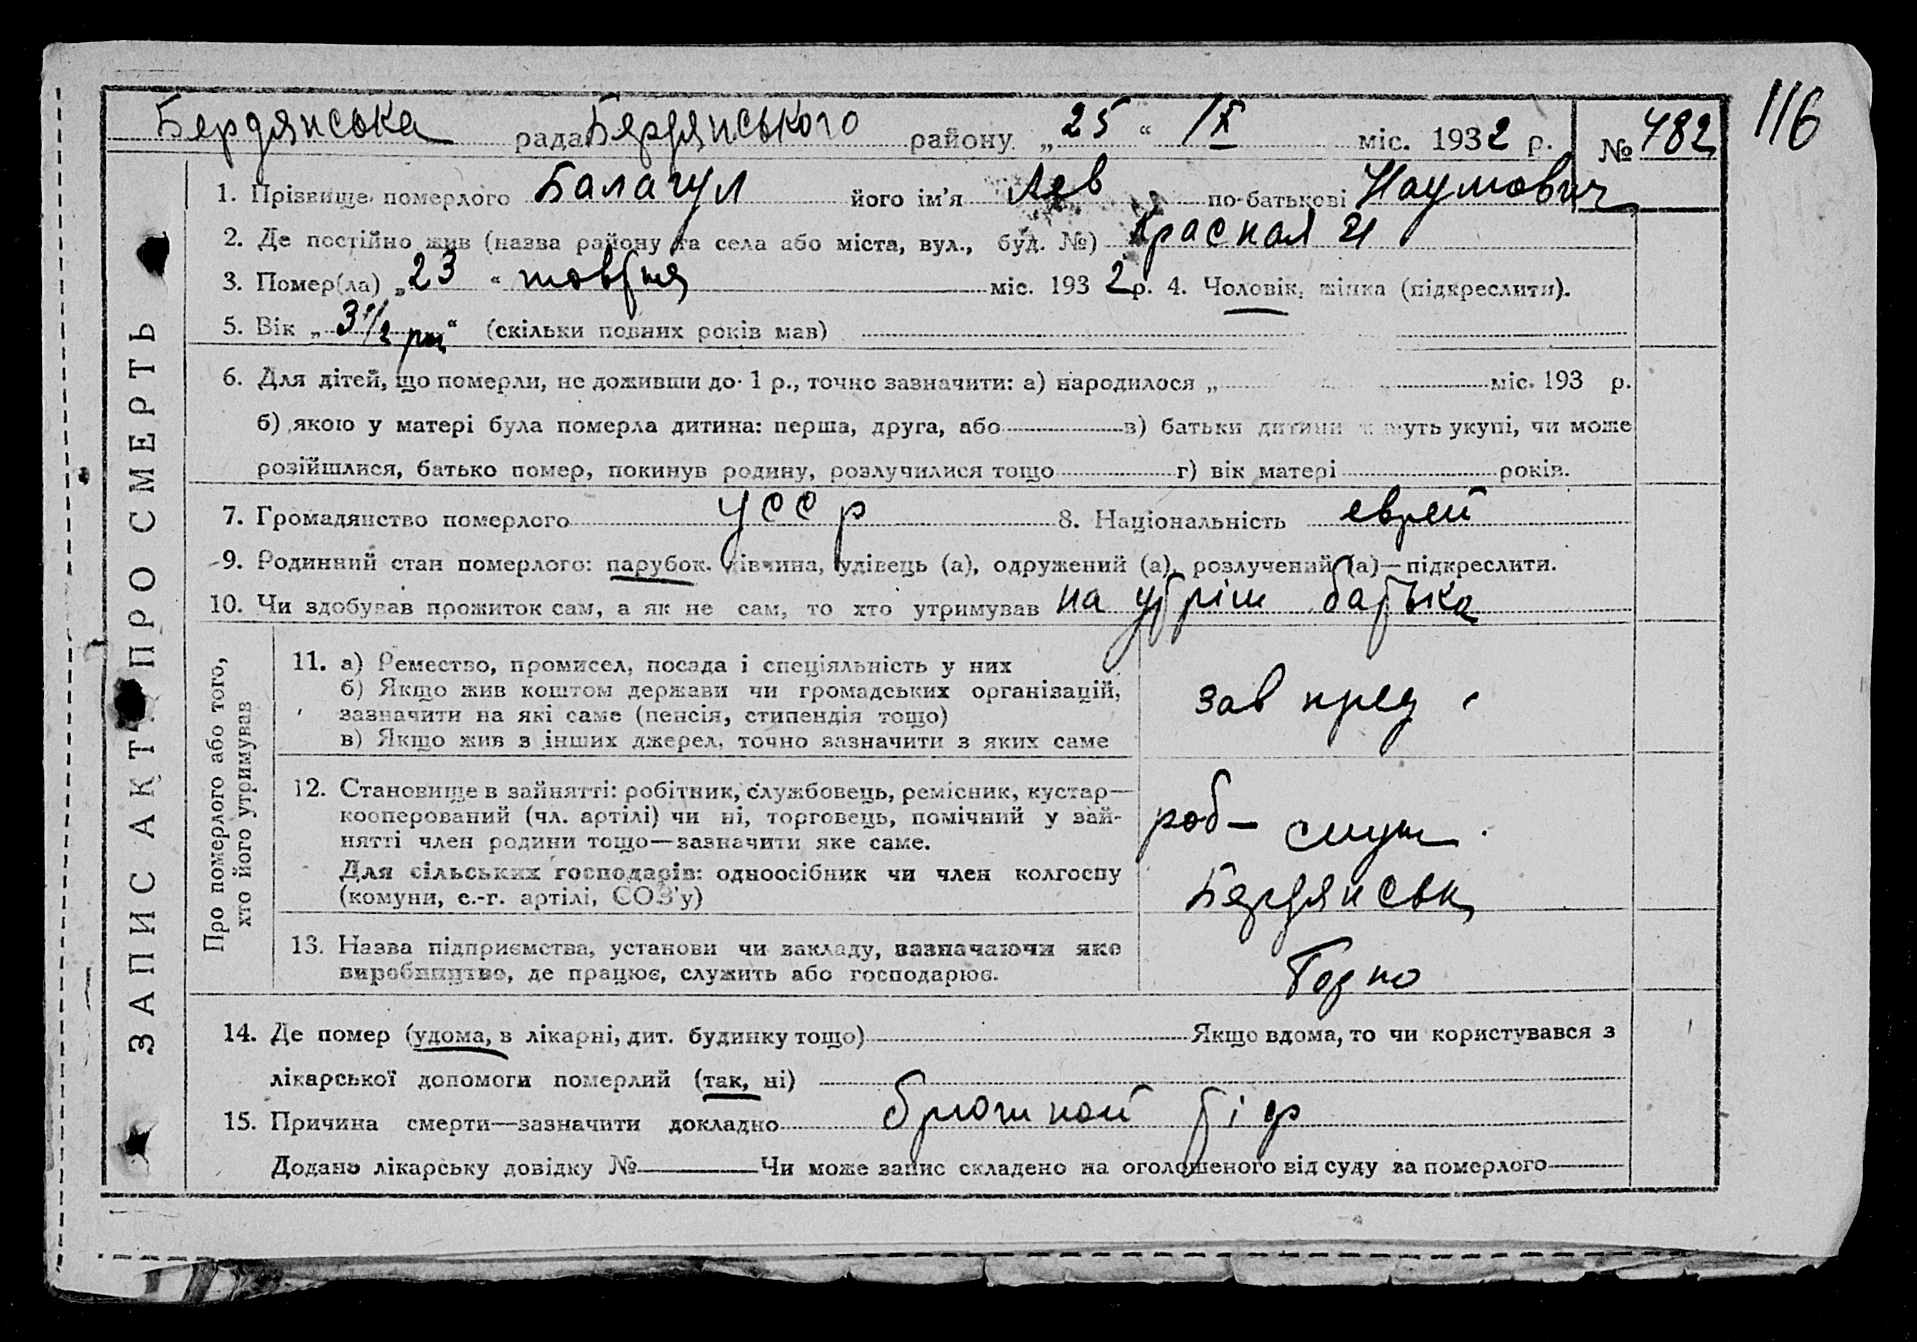 116
Бердянська рада Бердянського району „25“ IX міс. 1932 р. № 482
1. Прізвище померлого Балагул його ім'я Лев по-батькові Наумович
2. Де постійно жив (назва району та села або міста, вул., буд. №) Красная 21
3. Помер(ла) „23“ жовтня міс. 1932 р. 4. Чоловік, жінка (підкреслити).
5. Вік „3 1/2 рок“ (скільки повних років мав)
6. Для дітей, що померли, не доживши до 1 р., точно зазначити: а) народилося „ міс. 193 р.
б) якою у матері була померла дитина: перша, друга, або в) батьки дитини живуть укупі, чи може
розійшлися, батько помер, покинув родину, розлучилися тощо г) вік матері років.
7. Громадянство померлого УССР 8. Національність еврей
9. Родинний стан померлого: парубок, дівчина, удівець (а), одружений (а), розлучений (а)—підкреслити.
10. Чи здобував прожиток сам, а як не сам, то хто утримував на утрім батька
ЗАПИС АКТУ ПРО СМЕРТЬ
Про померлого або того,
хто його утримував
11. а) Ремество, промисел, посада і спеціяльність у них
б) Якщо жив коштом держави чи громадських організацій,
зазначити на які саме (пенсія, стипендія тощо)
в) Якщо жив з інших джерел, точно зазначити з яких саме
зав пред
12. Становище в зайнятті: робітник, службовець, ремісник, кустар—
кооперований (чл. артілі) чи ні, торговець, помічний у зай-
нятті член родини тощо—зазначити яке саме.
Для сільських господарів: одноосібник чи член колгоспу
(комуни, с.-г. артілі, СОЗ'у)
роб— служ.
Бердянськ
13. Назва підприємства, установи чи закладу, зазначаючи яке
виробництво, де працює, служить або господарює.
14. Де помер (удома, в лікарні, дит. будинку тощо) Якщо вдома, то чи користувався з
лікарської допомоги померлий (так, ні)
15. Причина смерти—зазначити докладно брюшной тіф
Додано лікарську довідку № Чи може запис складено на оголошеного від суду за померлого